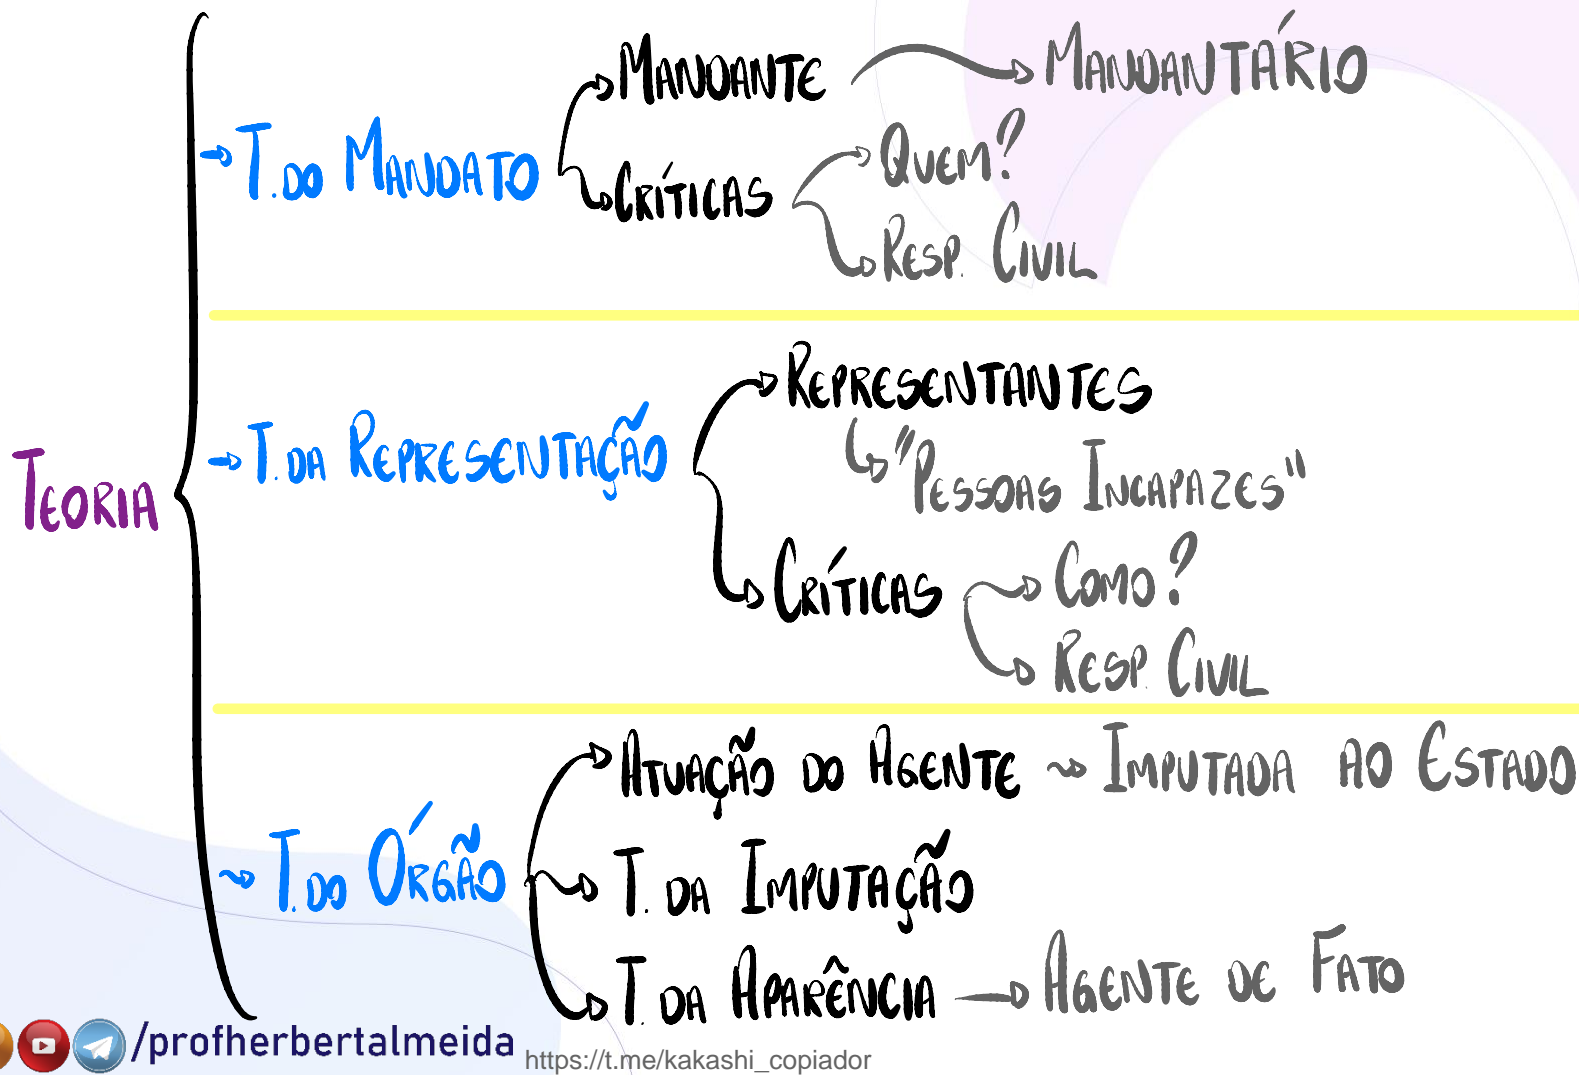 TEORIA
T. DO MANDATO
MANDANTE
MANDANTÁRIO
CRÍTICAS
QUEM?
RESP. CIVIL
T. DA REPRESENTAÇÃO
REPRESENTANTES
"PESSOAS INCAPAZES"
CRÍTICAS
COMO?
RESP. CIVIL
T. DO ÓRGÃO
ATUAÇÃO DO AGENTE
IMPUTADA AO ESTADO
T. DA IMPUTAÇÃO
T. DA APARÊNCIA
AGENTE DE FATO
/profherbertalmeida
https://t.me/kakashi_copiador